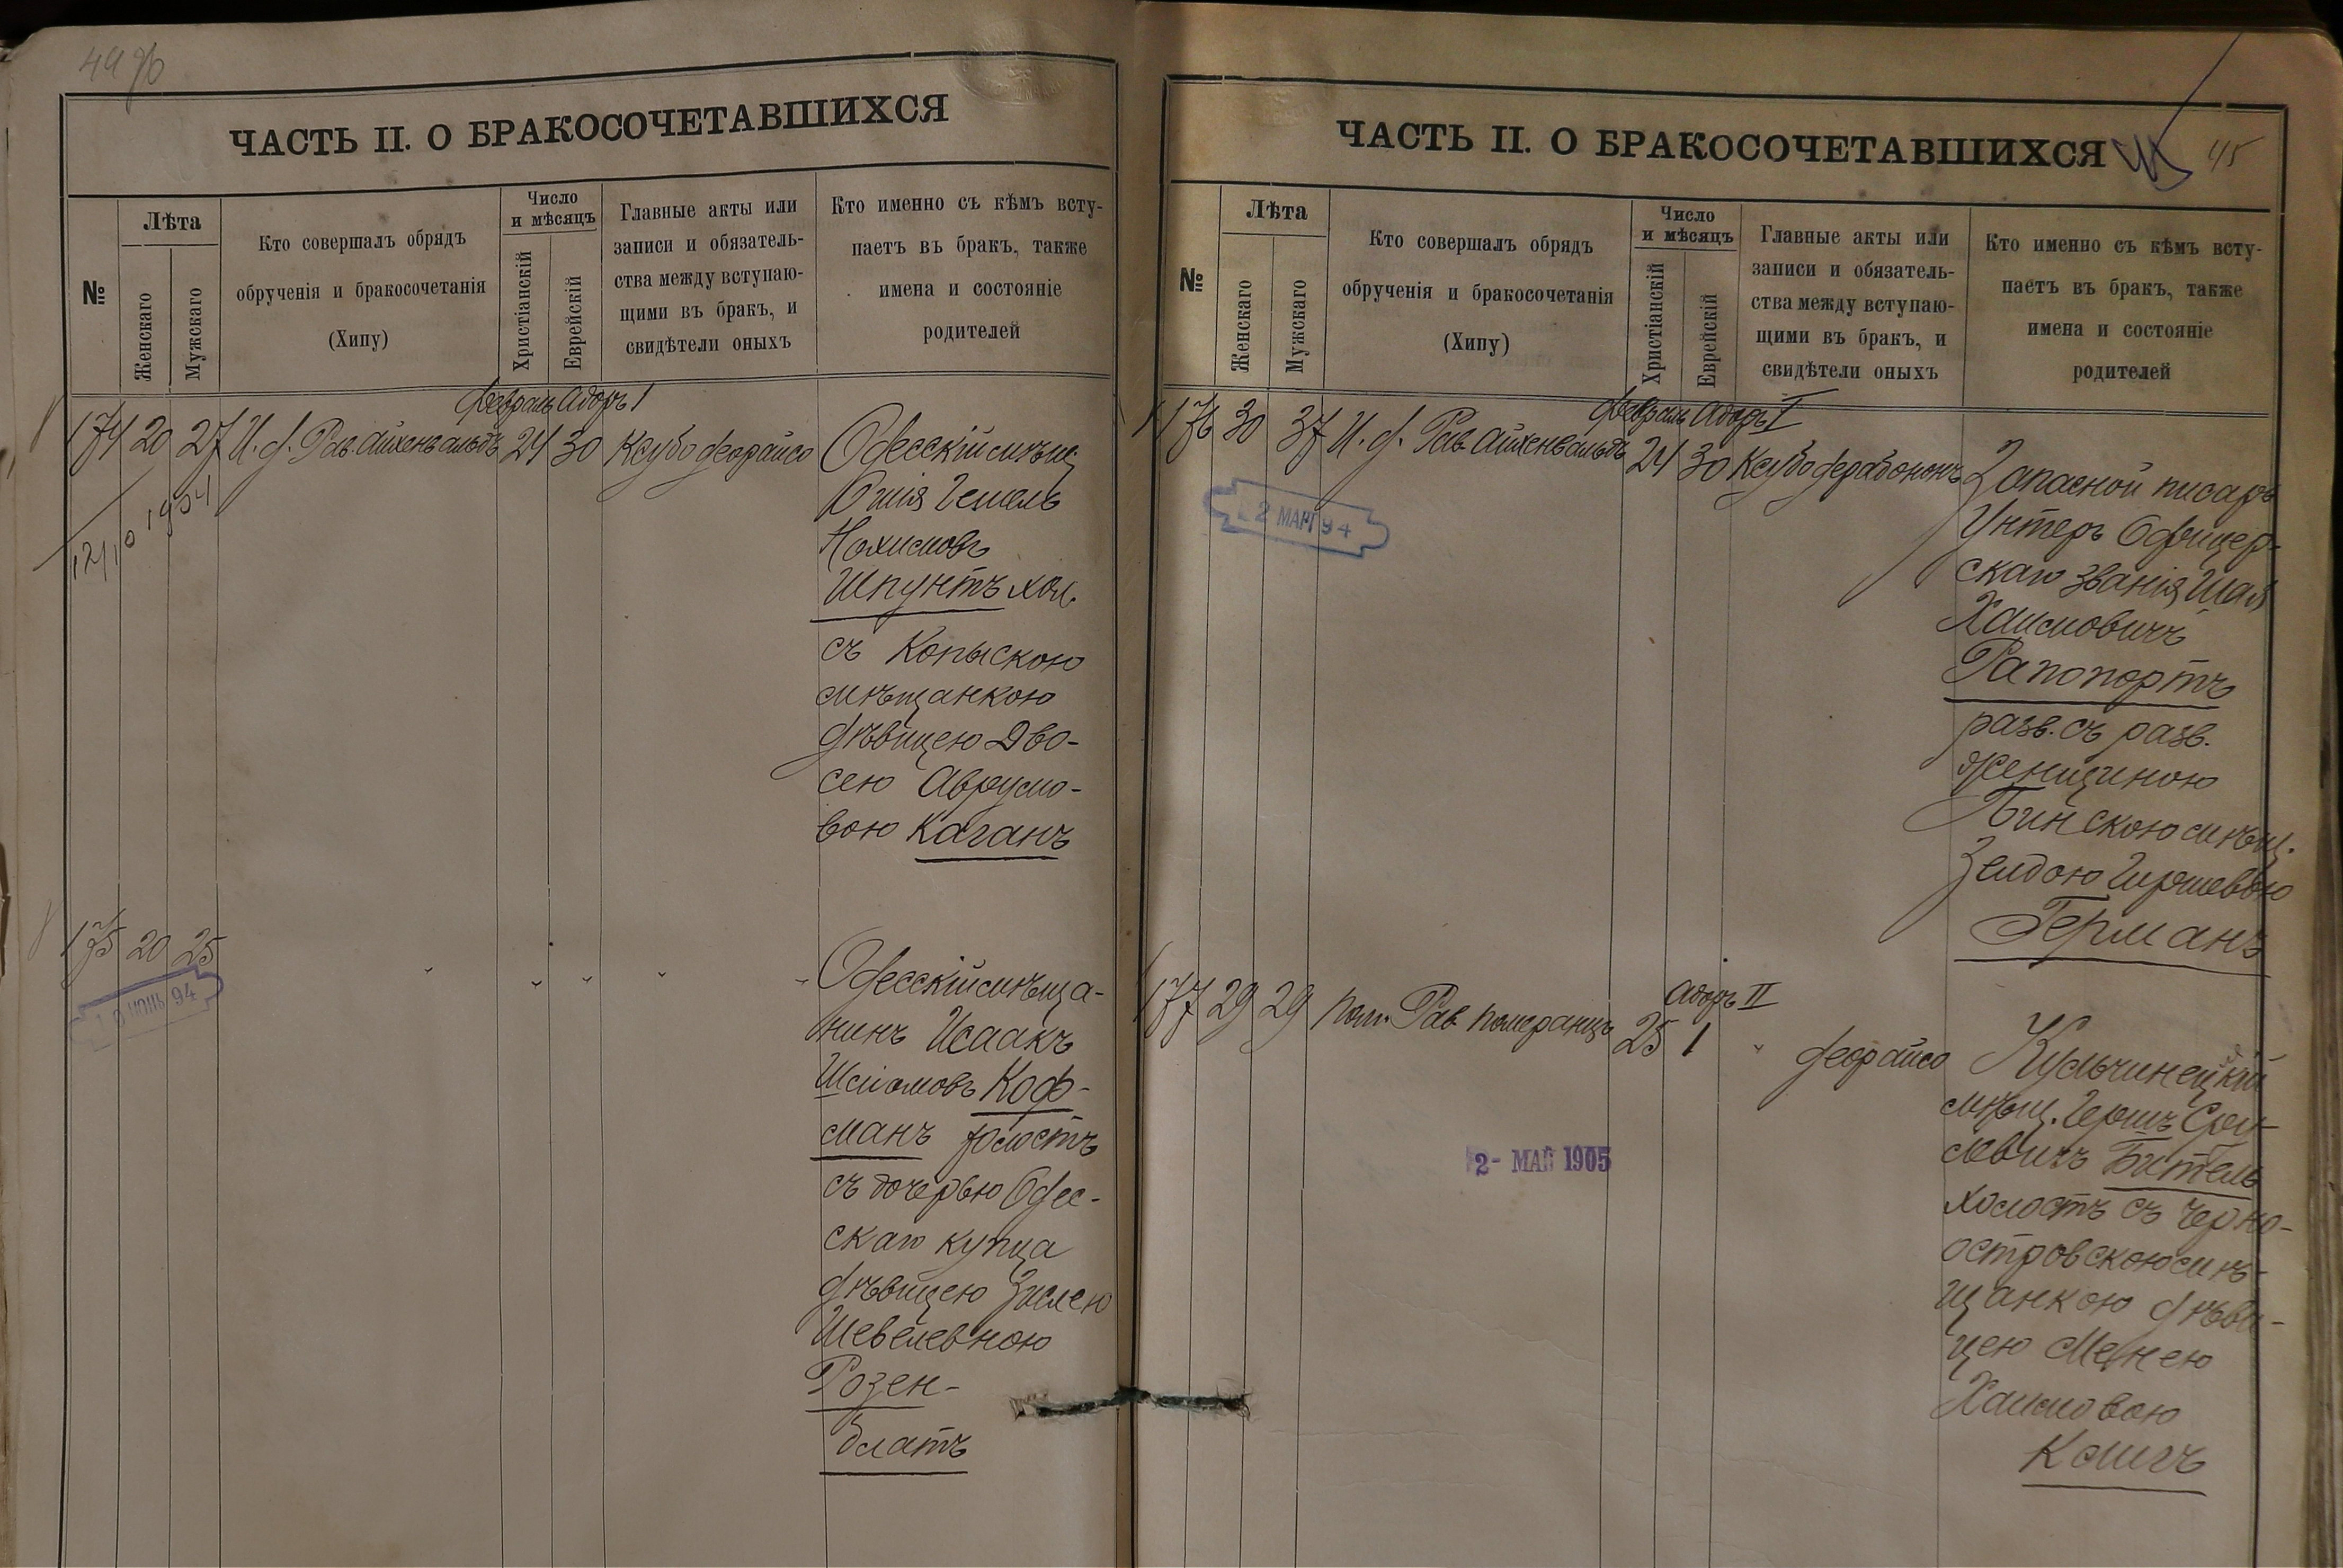 4496
ЧАСТЬ II. О БРАКОСОЧЕТАВШИХСЯ
№
Лѣта
Женскаго
Мужскаго
Кто совершалъ обрядъ
обрученія и бракосочетанія
(Хипу)
Число
и мѣсяцъ
Христіанскій
Еврейскій
Главные акты или
записи и обязатель-
ства между вступаю-
щими въ бракъ, и
свидѣтели оныхъ
Кто именно съ кѣмъ всту-
паетъ въ бракъ, также
имена и состояніе
родителей
Февраль Адоръ I
174 20 27 И. д. Рав. Айхенвальдъ 24 30 Ксубо деорайсо
Одесскій мѣщ.
Гешель
Нахимовъ
Шпунтъ хол.
съ Копыскою
мѣщанкою
дѣвицею Дво-
сею Аврумо-
вою Каганъ
175 20 25
ІЮНЬ 94
Одесскій мѣща-
нинъ Исаакъ
Шліомовъ Коф-
манъ холостъ
съ дочерью Одес-
скаго купца
дѣвицею Зислею
Шевелевною
Розен-
блатъ
ЧАСТЬ II. О БРАКОСОЧЕТАВШИХСЯ
45
№
Лѣта
Женскаго
Мужскаго
Кто совершалъ обрядъ
обрученія и бракосочетанія
(Хипу)
Число
и мѣсяцъ
Христіанскій
Еврейскій
Главные акты или
записи и обязатель-
ства между вступаю-
щими въ бракъ, и
свидѣтели оныхъ
Кто именно съ кѣмъ всту-
паетъ въ бракъ, также
имена и состояніе
родителей
Февраль Адоръ I
176 30 37 И. д. Рав. Айхенвальдъ 24 30 Ксубо дерабононъ
2 МАРТ 94
Запасной писарь
Унтеръ Офицер-
скаго званія Шая
Хаимовичъ
Рапопортъ
разв. съ разв.
женщиною
Бинскою мѣщ.
Зелдою Гершевою
Германъ
Адоръ II
177 29 29 Пом. Рав. Померанцъ 25 1 " деорайсо
2- МАЙ 1905
Кульчинецкій
мѣщ. Гершъ Срул-
евичъ Битель
холостъ съ Черно-
островскою мѣ-
щанкою дѣви-
цею Менею
Хаимовою
Клигъ